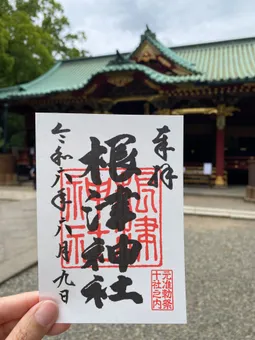 奉拝
根津神社
令和六年六月九日
根津神社
元准勅祭
十社之内